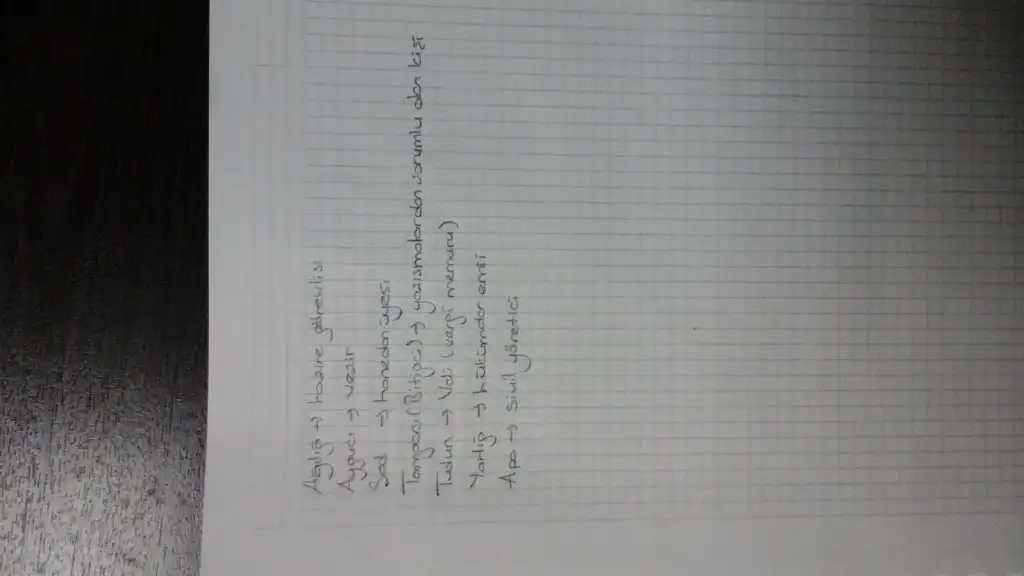 Agılığ → hazine görevlisi
Ayguci → vezir
Şad → hanedan üyesi
Tamgacı (Bitigci) → yazışmalardan sorumlu olan kişi
Tudun → Vali (vergi memuru)
Yarlığ → hükümdar emri
Apa → Sivil yönetici